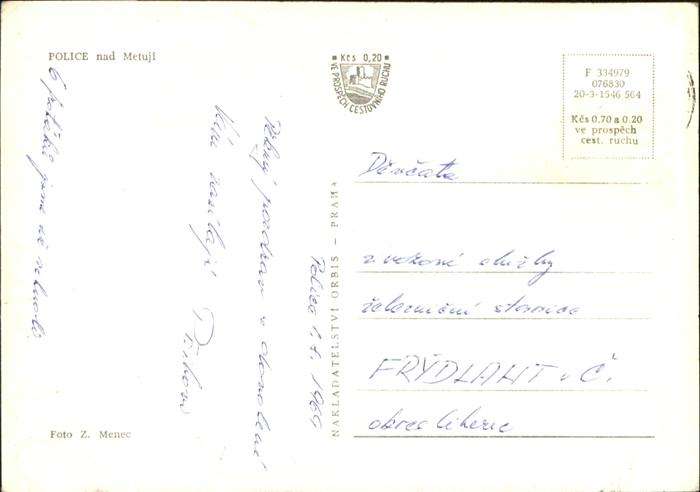 POLICE nad Metují
Kčs 0,20
VE PROSPĚCH CESTOVNÍHO RUCHU
F 334979
076830
20-3-1546 564
Kčs 0.70 a 0.20
ve prospěch
cest. ruchu
Police 1.7. 1960
Pěkný pozdrav z dovolené
Vám zasílají
NAKLADATELSTVÍ ORBIS – PRAHA
Děvčata
vozové služby
železniční stanice
FRÝDLANT v Č.
okres Liberec
Foto Z. Menec